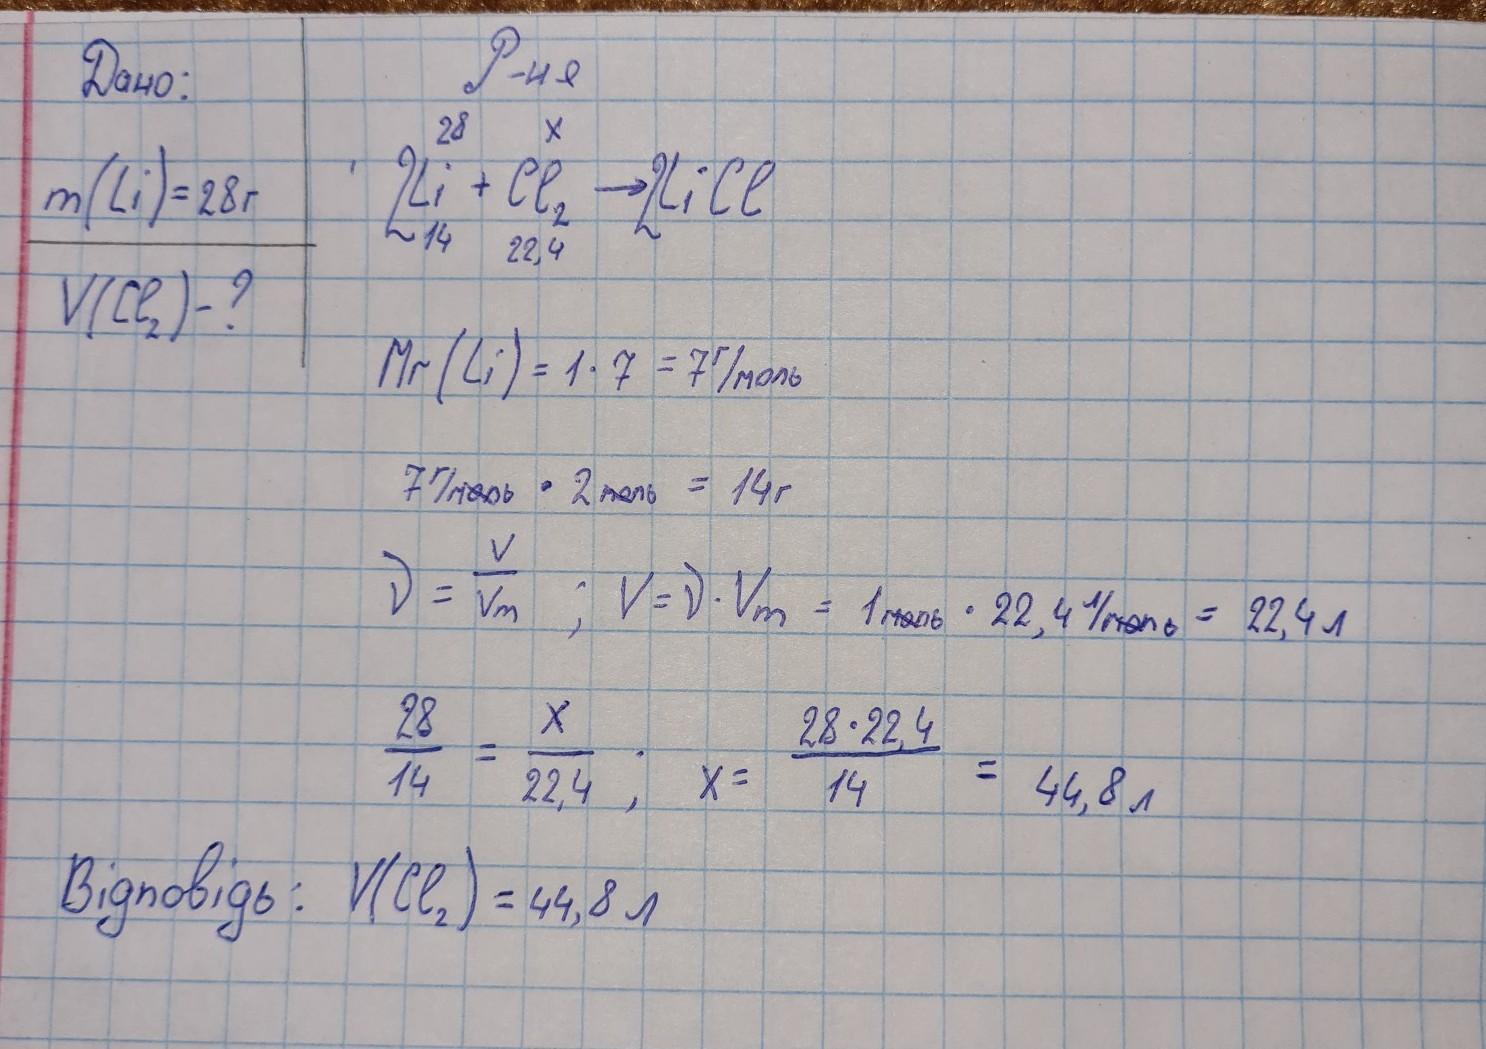 Дано:
Р-ня
28 x
m(Li)=28г
2Li + Cl₂ → 2LiCl
14 22,4
V(Cl₂)-?
Mr(Li) = 1·7 = 7г/моль
7г/моль · 2моль = 14г
ν = V/Vm ; V=ν·Vm = 1моль · 22,4 л/моль = 22,4 л
28/14 = x/22,4 ; x = 28·22,4/14 = 44,8 л
Відповідь: V(Cl₂) = 44,8 л